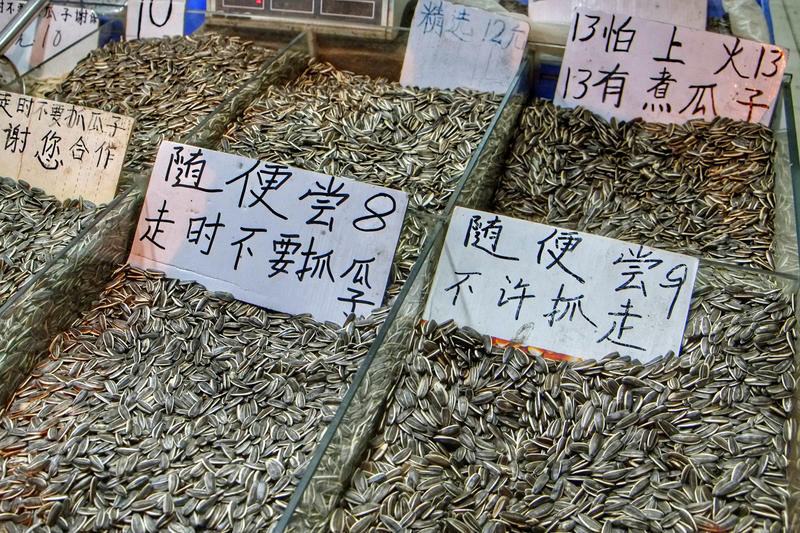 10
10
精选 12元
13怕上火13
13有煮瓜子
走时不要抓瓜子
谢您合作
随便尝8
走时不要抓瓜子
随便尝9
不许抓走